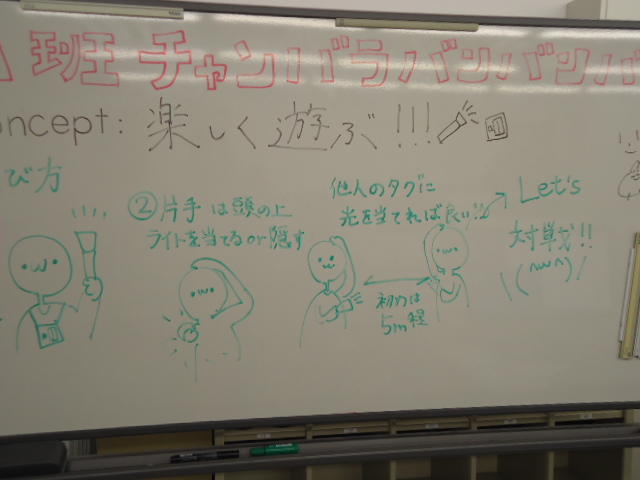 班 チャンバラバンバンバ
oncept: 楽しく遊ぶ!!!
び方
②片手は頭の上
ライトを当てるor隠す
他人のタグに
光を当てれば良い!!
初めは
5m程
Let's
対戦!!
\(^w^)/